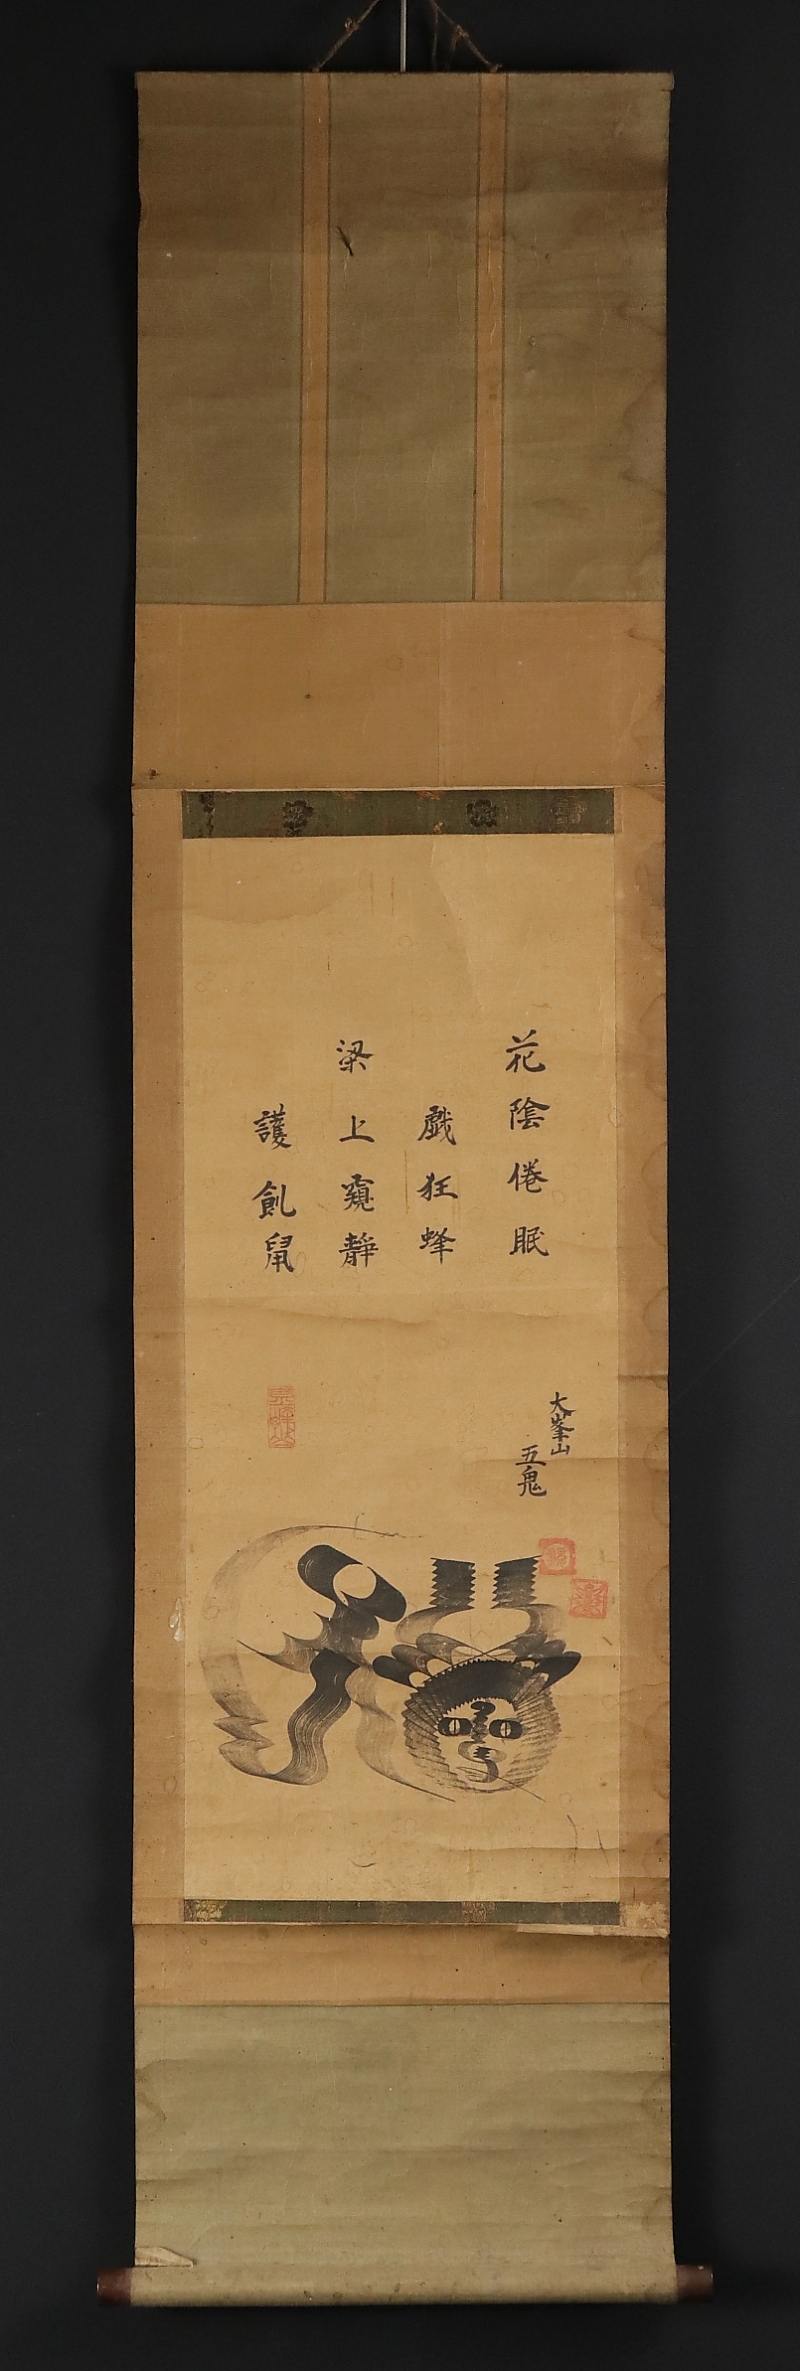 花陰倦眠
戲狂蜂
梁上窺靜
護飢鼠
大峯山
五鬼